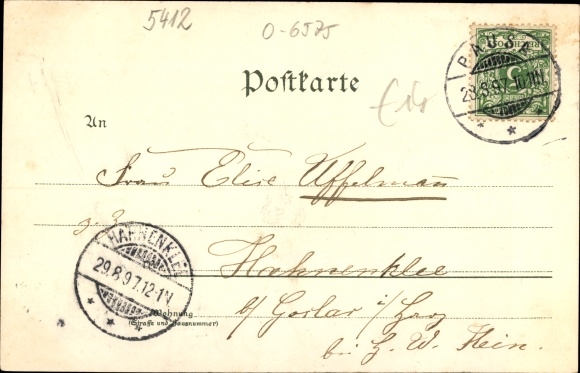 5412
O-6575
PAUSA
28.8.97.10-11V
Postkarte
€14
An
Frau Elise Uffelmann
z. Z.
HAHNENKLEE
29.8.97.12-1N
Hahnenklee
b/ Goslar i/ Harz
Wohnung
(Straße und Hausnummer)
bei H. W. Klein.